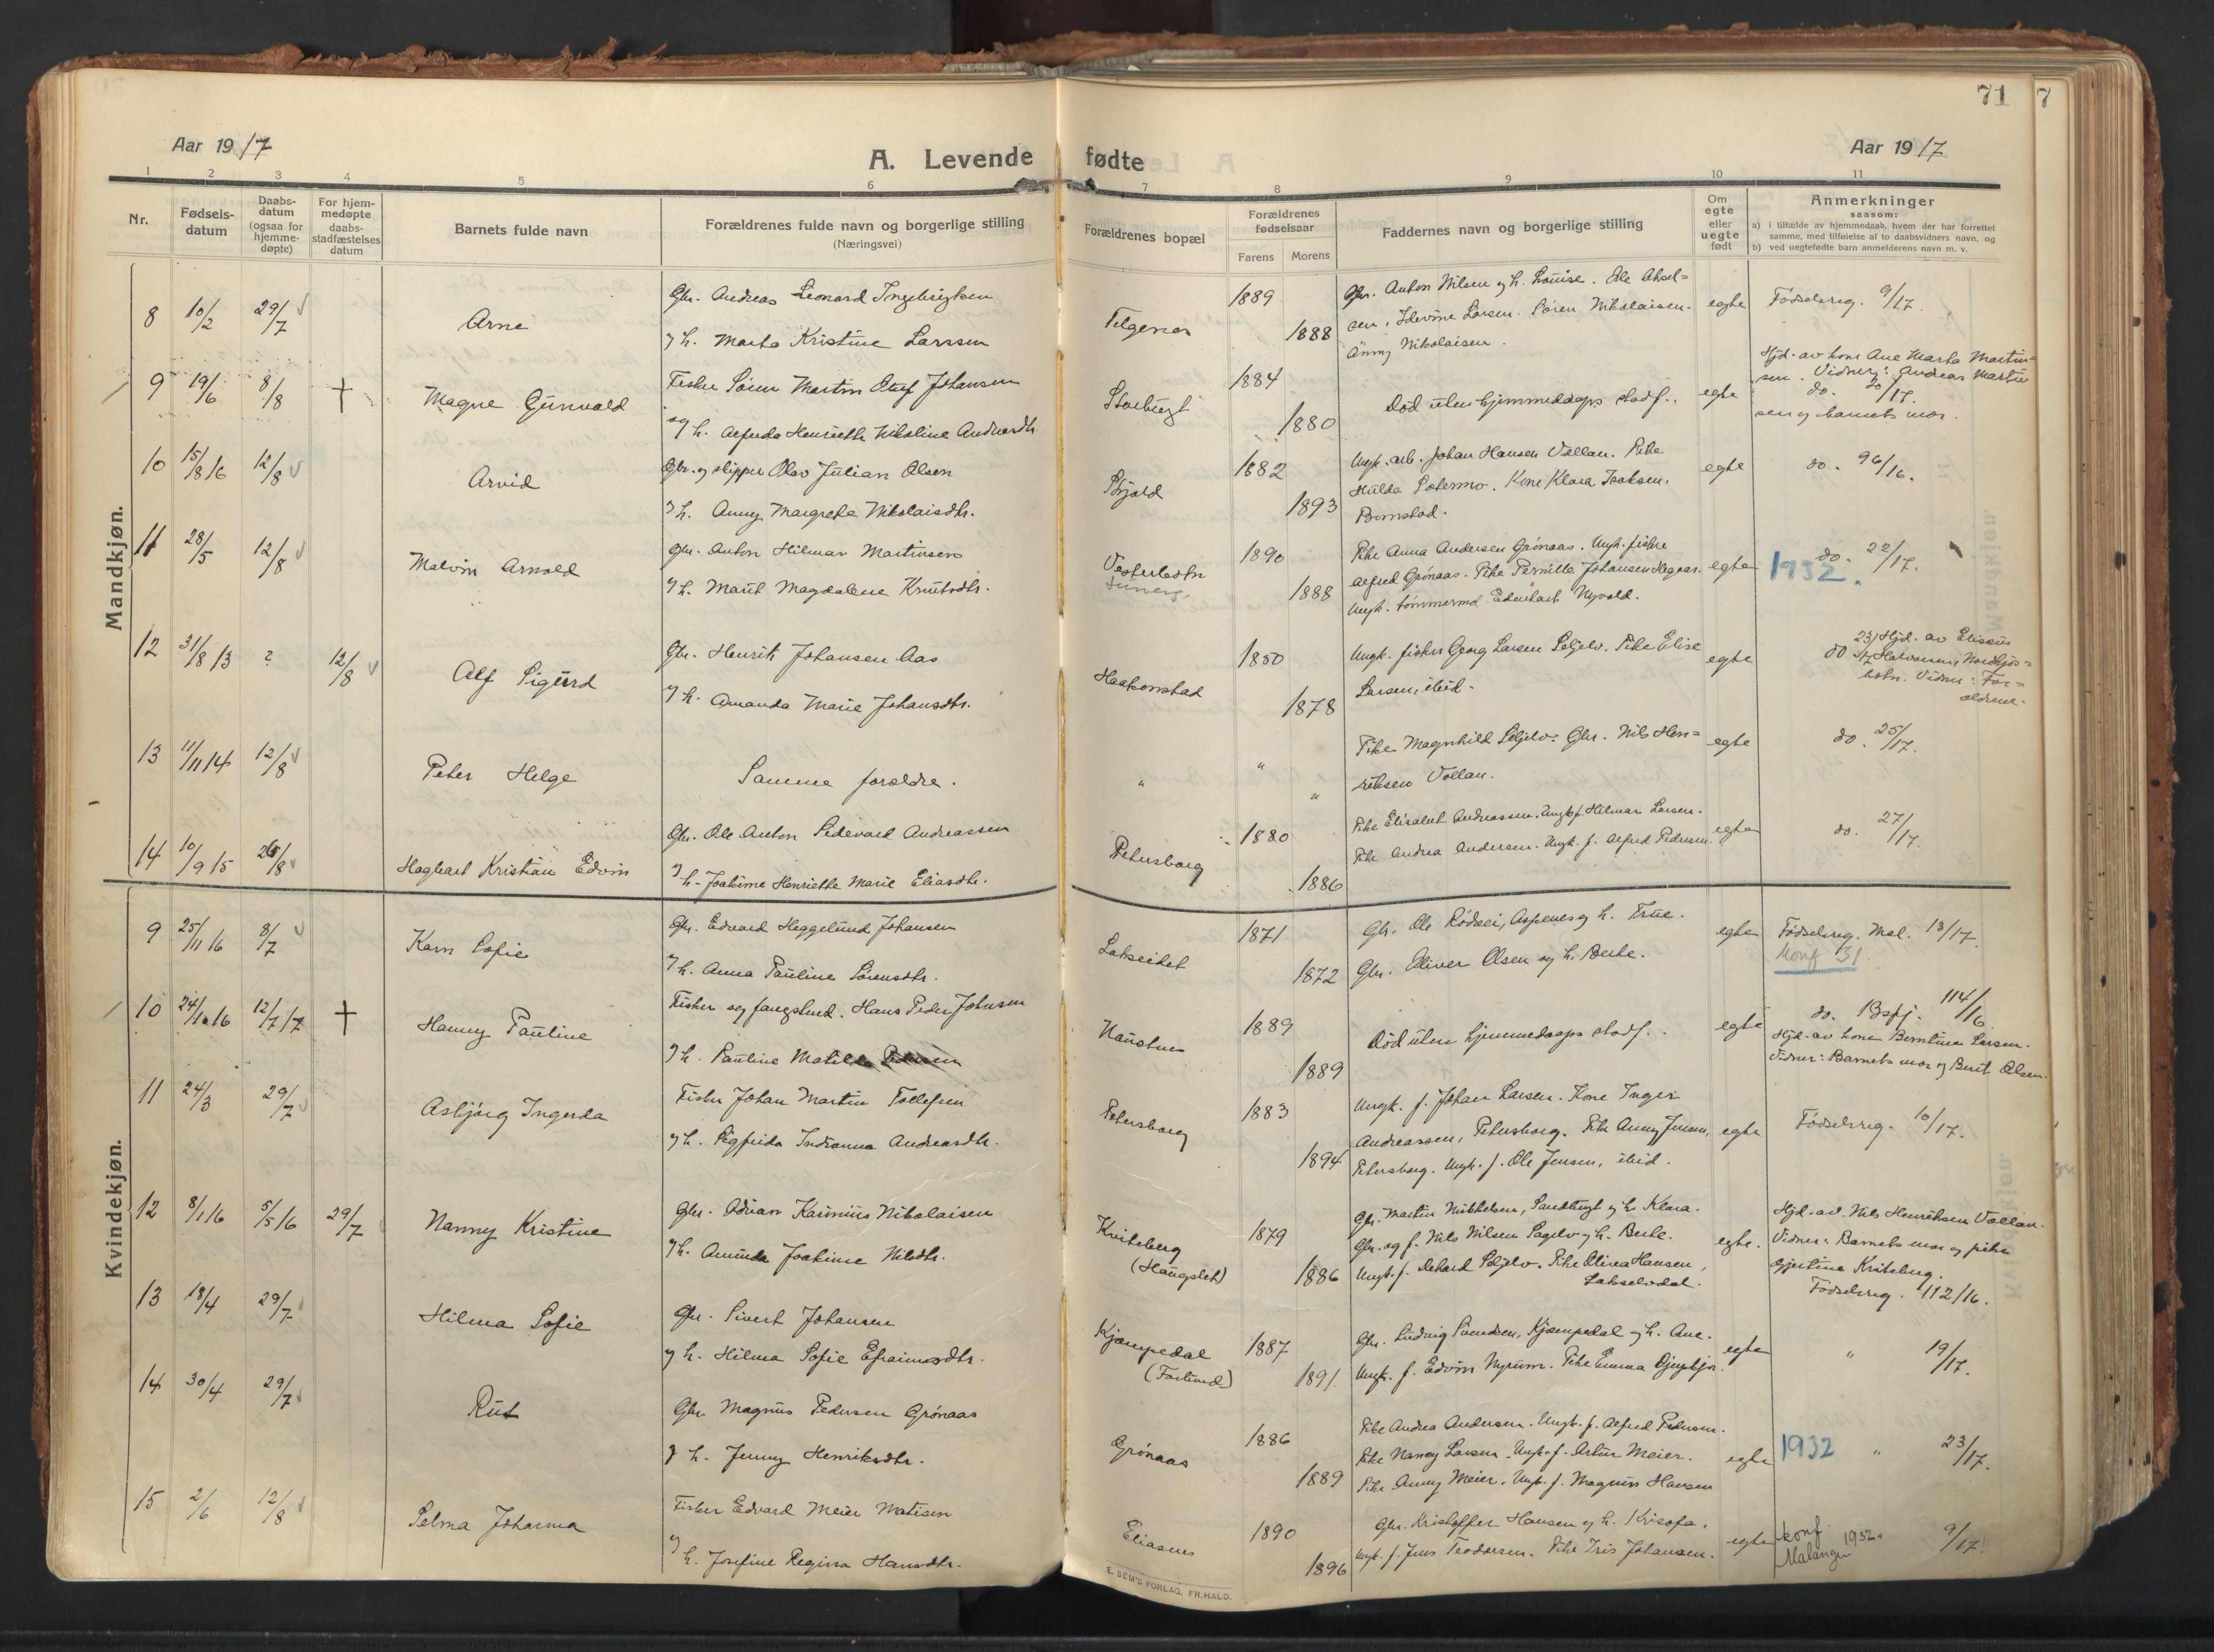 71
7
Aar 1917
A. Levende fødte
Aar 1917
1 2 3 4 5 6 7 8 9 10 11
Nr.
Fødsels-
datum
Daabs-
datum
(ogsaa for
hjemme-
døpte)
For hjem-
medøpte
daabs-
stadfæstelses
datum
Barnets fulde navn
Forældrenes fulde navn og borgerlige stilling
(Næringsvei)
Forældrenes bopæl
Forældrenes
fødselsaar
Farens Morens
Faddernes navn og borgerlige stilling
Om
egte
eller
uegte
født
Anmerkninger
saasom:
a) i tilfælde av hjemmedaab, hvem der har forrettet
samme, med tilføielse af to daabsvidners navn, og
b) ved uegtefødte barn anmelderens navn m. v.
Mandkjøn.
8 10/2 29/7 Arne
Gbr. Andreas Leonard Ingebrigtsen
og h. Marta Kristine Larssen
1889 1888
Gbr. Anton Nilsen og h. Louise. Ole Aksel-
sen, Larsen. Søren Nikolaisen.
Anny Nikolaisen.
egte
Fødselsreg. 9/17.
9 19/6 8/8 † Magne Gunvald
Fisker Søren Martin Oluf Johansen
og h. Alfreda Henriette Nikoline
Storbugt
1884 1880
Død uten hjemmedaaps stadf.
egte
Hjd. av kone Ane Marta Martin-
sen. Vidner: Andreas Martin
do. 20/17.
sen og barnets mor.
10 15/8 16 12/8 Arvid
Gbr. og skipper Olav Julian Olsen
og h. Anny Margrete Nikolaisdtr.
Skjold
1882 1893
Ungk. arb. Johan Hansen Vollan. Pike
Hulda Sætermo. Kone Klara Isaksen,
Bomstad.
egte
do. 96/16.
11 28/5 12/8 Malvin Arnold
Gbr. Anton Hilmar Martinsen
og h. Marit Magdalene Knutsdtr.
Vesterbotn
1890 1888
Pike Anna Andersen Grønaas. Ungk. fisker
Alfred Grønaas. Pike Pernille Johansen
Ungk. tømmermd. Edenhart Nyvold.
egte
1932. do. 22/17.
12 31/8 13 ? 12/8 Alf Sigurd
Gbr. Henrik Johansen Aas
og h. Amanda Marie Johansdtr.
Haakonstad
1850 1878
Ungk. fisker Georg Larsen Seljelv. Pike Elise
Larsen, ibid.
egte
do 23/17 Hjd. av Elisæus
Halvorsen, Nordkjos-
botn. Vidner: For-
ældrene.
13 11/11 14 12/8 Peter Helge
Samme forældre.
" " "
Pike Magnhild Seljelv. Gbr. Nils Hen-
riksen Vollan.
egte
do. 25/17.
14 10/9 15 26/8 Hagbart Kristian Edvin
Gbr. Ole Anton Sedevard Andreassen
og h. Joakime Henriette Marie Eliasdtr.
Petersborg
1880 1886
Pike Elisabet Andreassen. Ungk. f. Hilmar Larsen.
Pike Andrea Andersen. Ungk. f. Alfred Pedersen.
egte
do. 27/17.
Kvindekjøn.
9 25/11 16 8/7 Karn Sofie
Gbr. Edvard Heggelund Johansen
og h. Anna Pauline Sørensdtr.
Lakseidet
1871 1872
Gbr. Ole Rødsei, Aspenes og h. Trine.
Gbr. Oliver Olsen og h. Berte.
egte
Fødselsreg. Mal. 13/17.
Konf 31
10 24/10 16 12/7 17 † Hanny Pauline
Fisker og fangstmd. Hans Peder Johnsen
og h. Pauline Matilde
Naustnes
1889 1889
Død uten hjemmedaaps stadf.
egte
do. Bsfj. 114/16.
Hjd. av kone Berntine Larsen.
Vidner: Barnets mor og Berit Olsen.
11 24/3 29/7 Asbjørg Ingerda
Fisker Johan Martin Tollefsen
og h. Sigfrida Indianna Andreasdtr.
Petersborg
1883 1894
Ungk. f. Johan Larsen. Kone Inger
Andreassen, Petersborg. Pike Anny Jensen,
Petersborg. Ungk. f. Ole Jensen, ibid.
egte
Fødselsreg. 10/17.
12 8/1 16 5/5 16 29/7 Nanny Kristine
Gbr. Adrian Karinius Nikolaisen
og h. Amunda Joakime Nilsdtr.
Kviteberg
(Haugslet)
1879 1886
Gbr. Martin Mikkelsen, Sandbugt og h. Klara.
Gbr. og f. Nils Nilsen Sagelv og h. Berte.
Ungk. f. Rikard Seljelv. Pike Olivea Hansen,
Lakselvdal.
egte.
Hjd. av Nils Henriksen Vollan.
Vidner: Barnets mor og pike
Gjertine Kviteberg.
Fødselsreg. 112/16.
13 18/4 29/7 Hilma Sofie
Gbr. Sivert Johansen
og h. Hilma Sofie Efraimsdtr.
Kjempedal
1887 1891.
Gbr. Ludvig Svendsen, Kjempedal og h. Ane.
Ungk. f. Edvin Nyrum. Pike Emma
egte
" 19/17.
14 30/4 29/7 Rut
Gbr. Magnus Pedersen Grønaas
og h. Jenny Henriksdtr.
Grønaas
1886 1889
Pike Andrea Andersen. Ungk. f. Alfred Pedersen.
Pike Nancy Larsen. Ungk. f. Artur Meier.
Pike Anny Meier. Ungk. f. Magnus Hansen
egte
1932 " 23/17.
15 2/6 12/8 Selma Johanna
Fisker Edvard Meier Matisen
og h. Josefine Regina Hansdtr.
Eliasnes
1890 1896
Gbr. Kristoffer Hansen og h. Krisofa.
Ungk. f. Jens Teodorsen. Pike Iris Johansen.
egte
konf. 1932.
Malangen
9/17.
E. SEM'S FORLAG, FR.HALD.